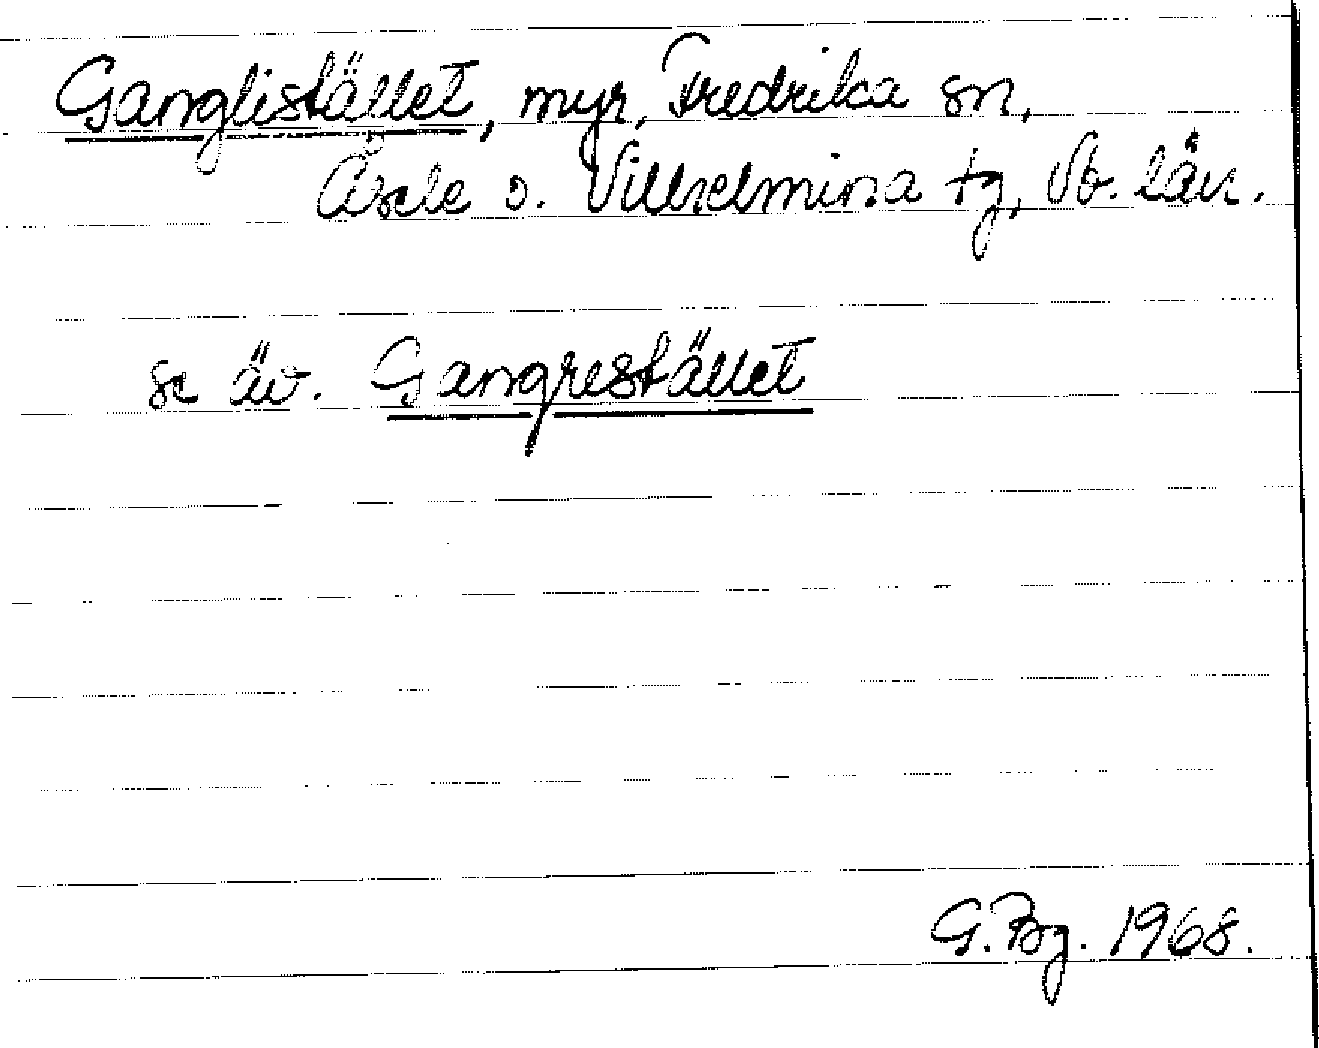 Ganglistället, myr, Fredrika sn,
Åsele o. Vilhelmina tg, Vb. län.
se äv. Gangrestället
G. Bg. 1968.